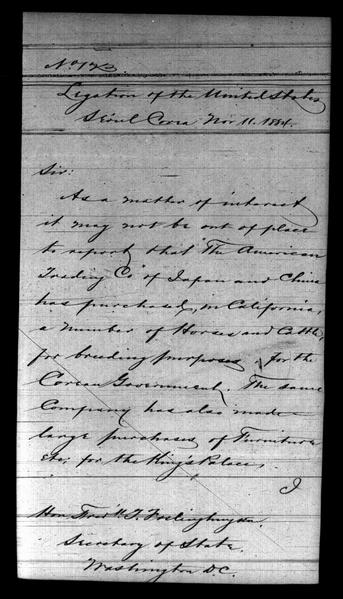 Legation of the United States
Séoul Corea Nov 11. 1884.
Sir:
As a matter of interest
it may not be out of place
to report that The American
Trading Co of Japan and China
has purchased, in California,
a number of Horses and Cattle,
for breeding purposes, for the
Corean Government. The same
Company has also made
large purchases of Furniture
etc, for the King's Palace,
I
Hon. Fred'k T. Frelinghuysen.
Secretary of State.
Washington D.C.